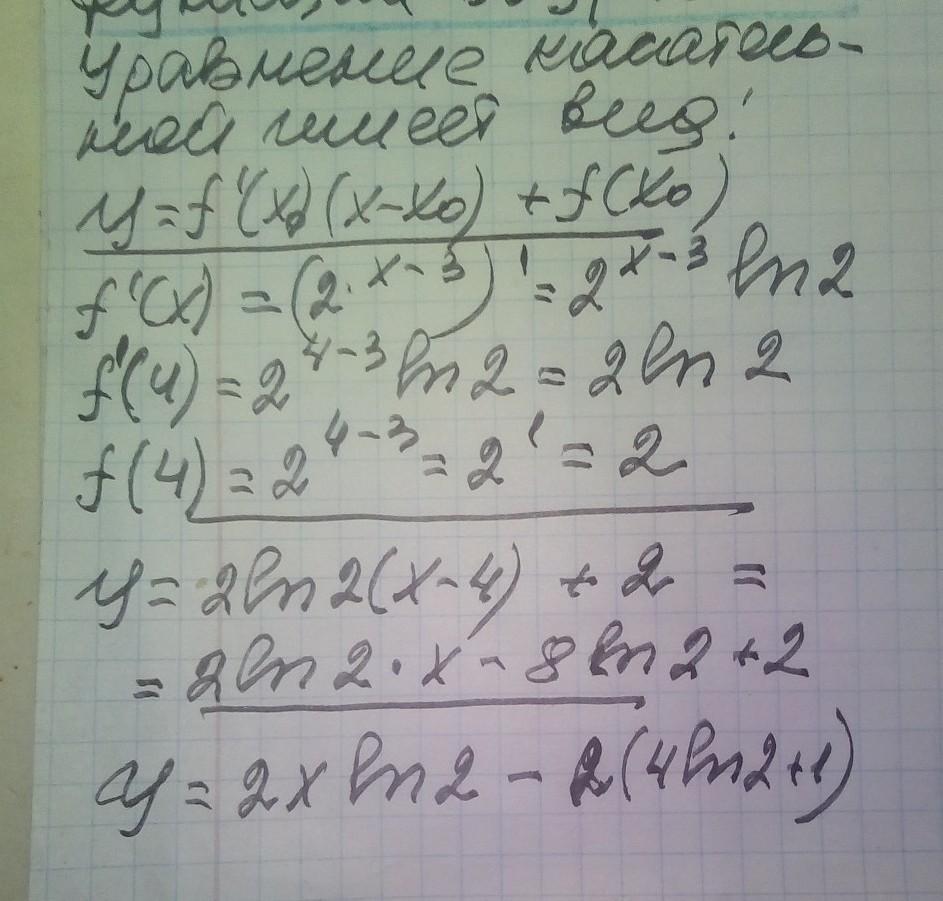 Уравнение касатель-
ной имеет вид:
y = f'(x₀)(x-x₀) + f(x₀)
f'(x) = (2^(x-3))' = 2^(x-3) ln 2
f'(4) = 2^(4-3) ln 2 = 2 ln 2
f(4) = 2^(4-3) = 2^1 = 2
y = 2 ln 2 (x-4) + 2 =
= 2 ln 2 · x - 8 ln 2 + 2
y = 2x ln 2 - 2(4 ln 2 + 1)